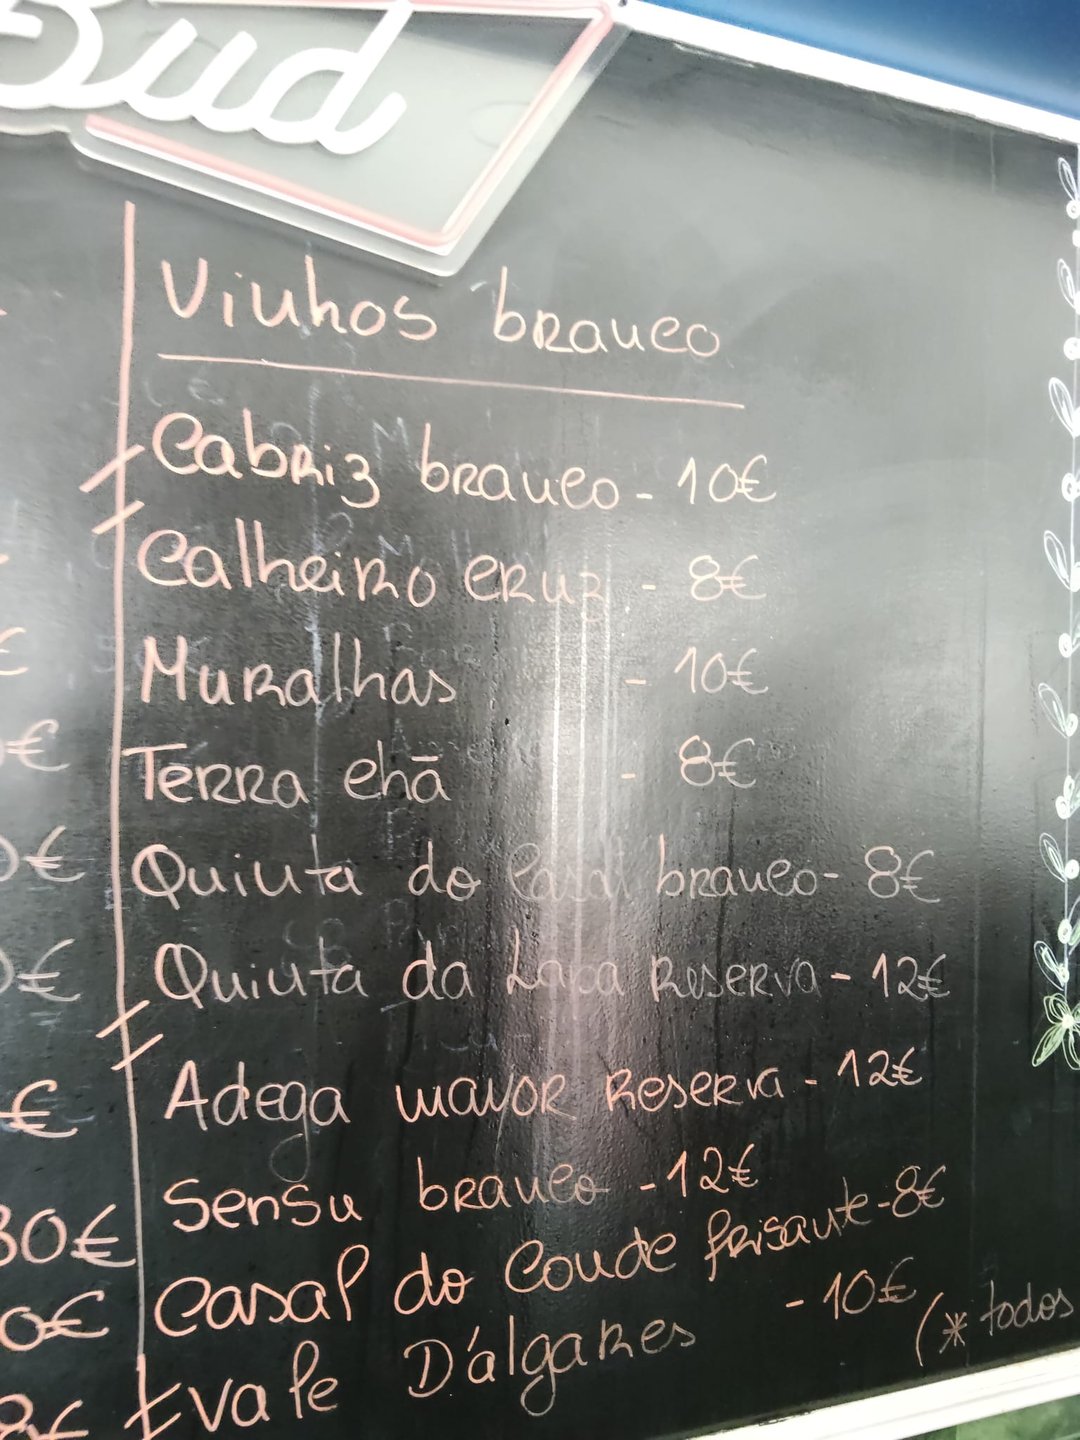 Bud
Vinhos branco
Cabriz branco - 10€
Calheiro cruz - 8€
Muralhas - 10€
Terra chã - 8€
Quinta do Casal branco - 8€
Quinta da Lapa Reserva - 12€
Adega mayor Reserva - 12€
Sensu branco - 12€
Casal do Conde frisante - 8€
vale D'algares - 10€
(* todos
€
€
0€
0€
€
30€
0€
8€